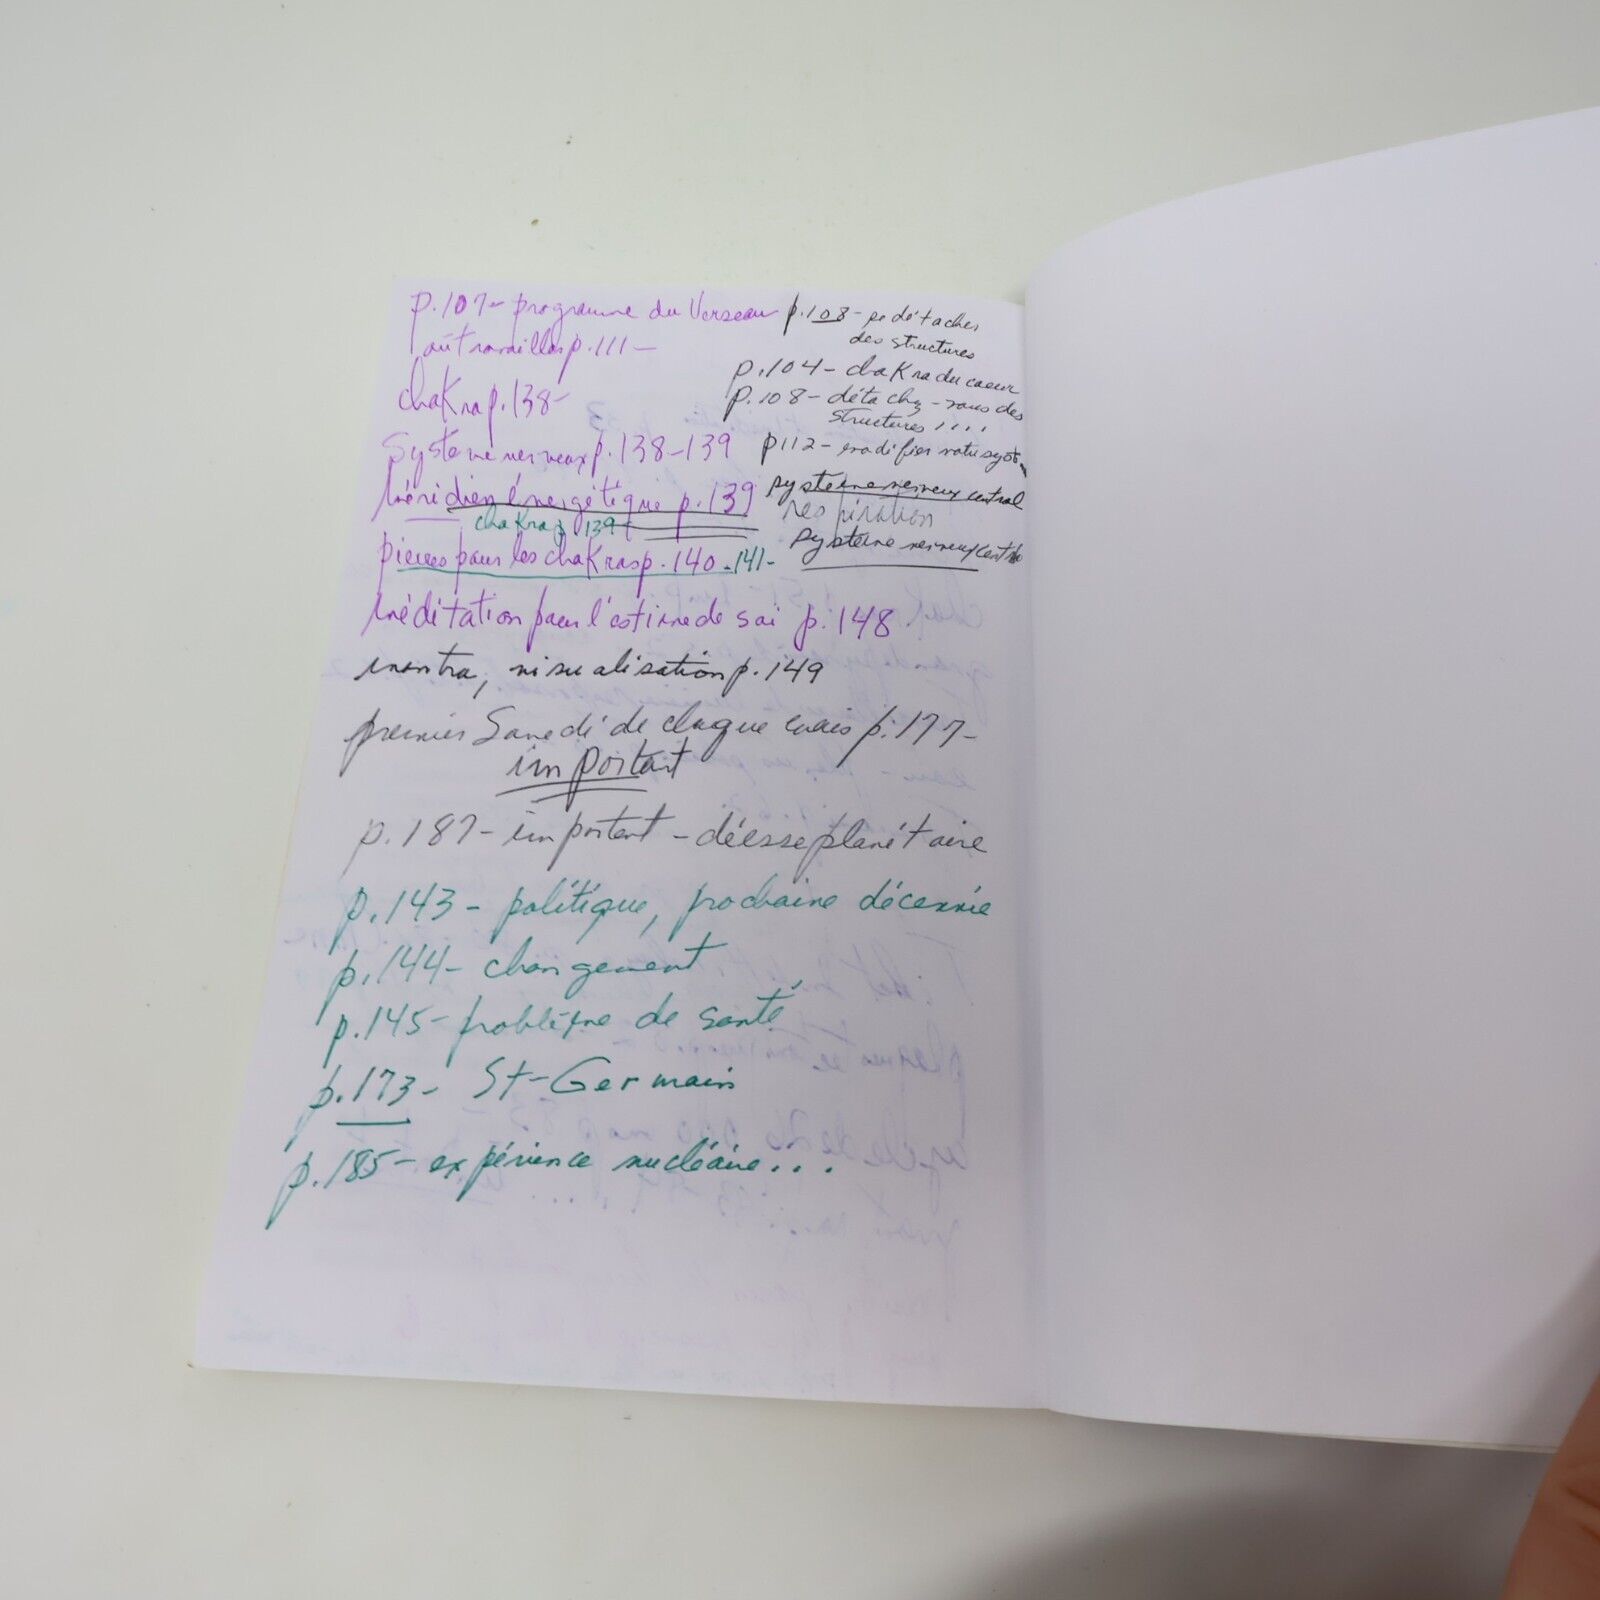 p.107- programme du Verseau
où travailler p.111-
chakra p.138-
Système nerveux p.138-139
méridien énergétique p.139
chakra p.139-
pierres pour les chakras p.140-141-
méditation pour l'estime de soi p.148
mantra, visualisation p.149
premier Samedi de chaque mois p.177-
important
p.187- important - déesse planétaire
p.143- politique, prochaine décennie
p.144- changement
p.145- problème de santé
p.173- St-Germain
p.185- expérience nucléaire...
p.108- se détacher
des structures
p.104- chakra du coeur
p.108- détachez-vous des
structures !!!!
p112- modifier votre
système nerveux central
respiration
système nerveux